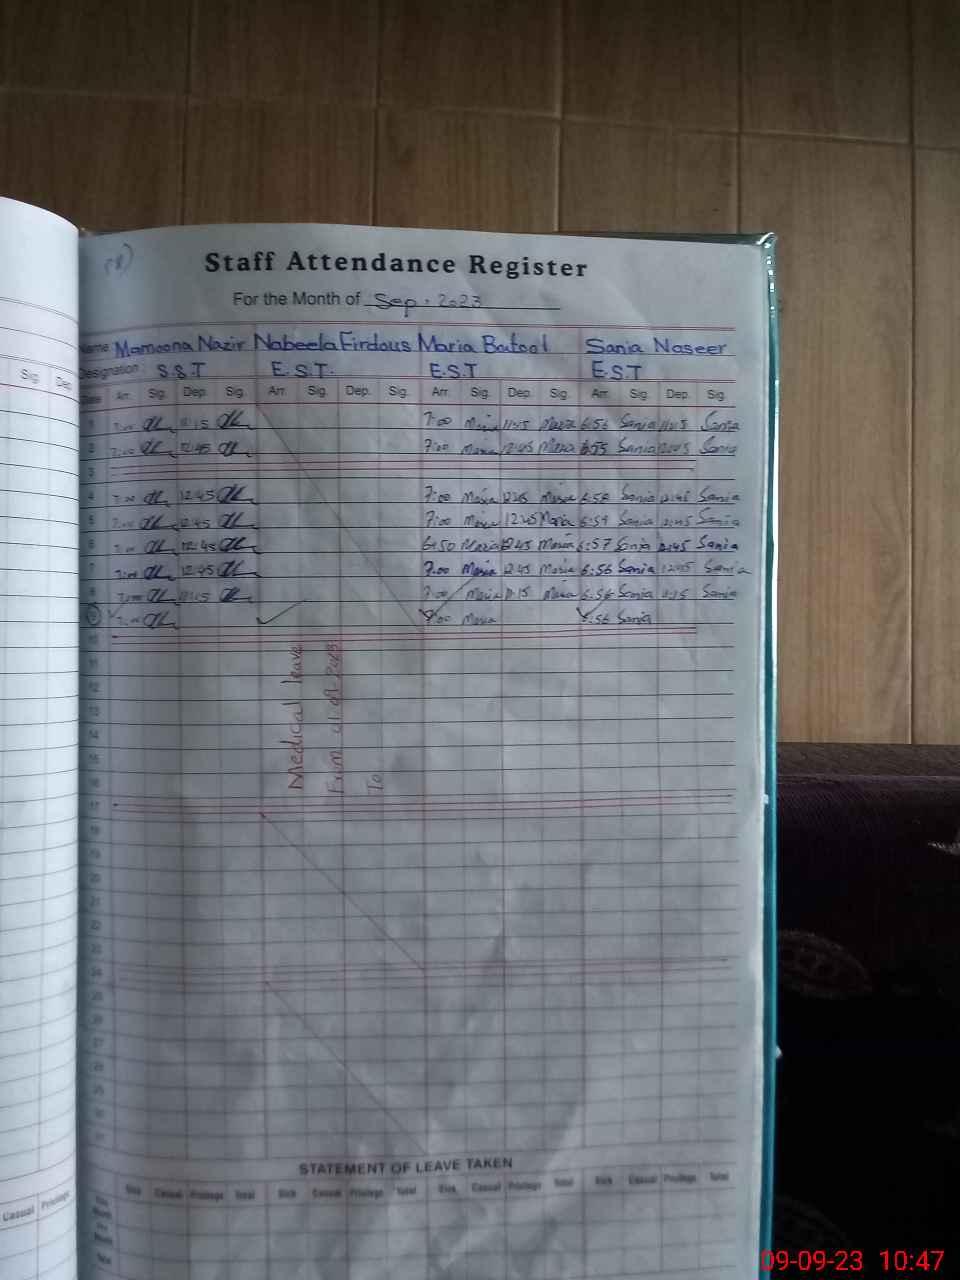 Staff Attendance Register
For the Month of Sep. 2023
Name Mamoona Nazir Nabeela Firdous Maria Batool Sania Naseer
Designation: S.S.T E.S.T. E.S.T E.S.T
Sig. Dep.
Date Arr. Sig. Dep. Sig. Arr. Sig. Dep. Sig. Arr. Sig. Dep. Sig. Arr. Sig. Dep. Sig.
1 7:00 11:15 7:00 Maria 11:15 Maria 6:56 Sania 11:15 Sania
2 7:00 12:45 7:00 Maria 12:45 Maria 6:55 Sania 12:45 Sania
3
4 7:00 12:45 7:00 Maria Maria 6:56 Sania 12:45 Sania
5 7:00 12:45 7:00 Maria 12:45 Maria 6:54 Sania 12:45 Sania
6 7:00 12:45 6:50 Maria 12:45 Maria 6:57 Sania 12:45 Sania
7 7:00 12:45 7:00 Maria 12:45 Maria 6:56 Sania 12:45 Sania
8 7:00 11:15 7:00 Maria 11:15 Maria 6:56 Sania 11:15 Sania
9 7:00 7:00 Maria 6:56 Sania
10
11
12
13
14
15
16
17
18
19
20
21
22
23
24
25
26
27
28
29
30
31
Medical leave
From 01-09-2023
To
STATEMENT OF LEAVE TAKEN
Sick Casual Privilege Total Sick Casual Privilege Total Sick Casual Privilege Total Sick Casual Privilege Total
Casual Privilege
09-09-23 10:47